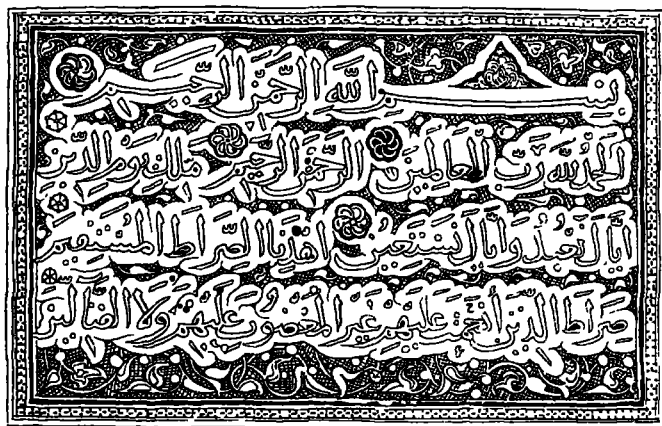 بِسْمِ اللَّهِ الرَّحْمَنِ الرَّحِيمِ
الْحَمْدُ لِلَّهِ رَبِّ الْعَالَمِينَ الرَّحْمَنِ الرَّحِيمِ مَلِكِ يَوْمِ الدِّينِ
إِيَّاكَ نَعْبُدُ وَإِيَّاكَ نَسْتَعِينُ اهْدِنَا الصِّرَاطَ الْمُسْتَقِيمَ
صِرَاطَ الَّذِينَ أَنْعَمْتَ عَلَيْهِمْ غَيْرِ الْمَغْضُوبِ عَلَيْهِمْ وَلَا الضَّالِّينَ